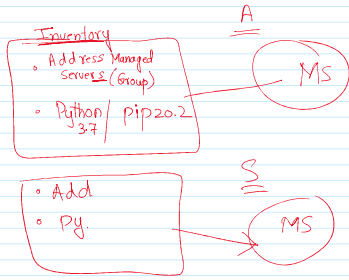 A
Inventory
• Address Managed
Servers (Group)
MS
• Python / pip20.2
3.7
S
• Add
• Py.
MS